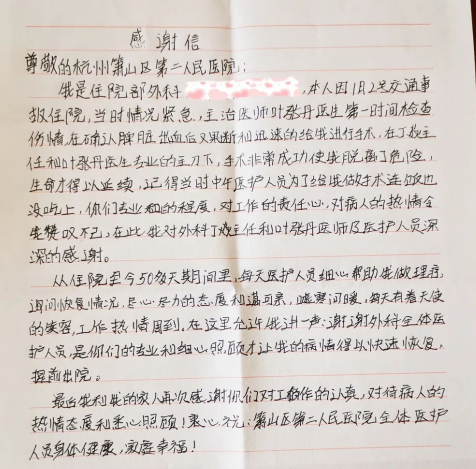 感谢信
尊敬的杭州萧山区第二人民医院:
我是住院部外科 ,本人因1月2号交通事
故住院,当时情况紧急,主治医师叶张丹医生第一时间检查
伤情,在确认脾脏出血后又果断和迅速的给我进行手术,在丁成主
任和叶张丹医生专业的主刀下,手术非常成功使我脱离了危险,
生命才得以延续,记得当时中午医护人员为了给我做手术连饭也
没吃上,你们专业和的程度,对工作的责任心,对病人的热情令
我赞叹不已,在此我对外科丁成主任和叶张丹医师及医护人员深
深的感谢。
从住院至今50多天期间里,每天医护人员细心帮助我做理疗,
询问恢复情况,尽心尽力的态度和蔼可亲,嘘寒问暖,每天有着天使
的笑容,工作热情周到,在这里允许我讲一声:谢谢外科全体医
护人员,是你们的专业和细心照顾才让我的病情得以快速恢复,
提前出院。
最后我和我的家人再次感谢你们对工作的认真,对待病人的
热情态度和悉心照顾!衷心祝:萧山区第二人民医院全体医护
人员身体健康,家庭幸福!